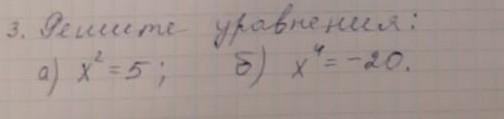 3. Решите уравнения:
а) x² = 5; б) x⁴ = -20.